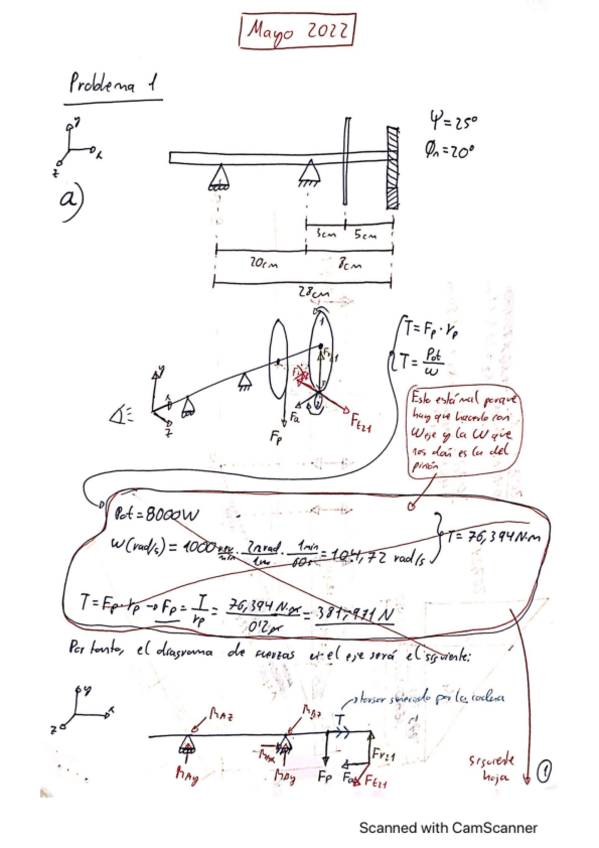 Mayo 2022
Problema 1
y
x
z
a)
Ψ=25°
Φn=20°
3cm
5cm
20cm
8cm
28cm
T=Fp·rp
T=Pot/ω
1
y
x
z
Fa
Fp
Ft21
Esto está mal porque
hay que hacerlo con
ωeje y la ω que
nos dan es la del
piñón
Pot=8000W
ω(rad/s)=1000 rev/min · 2π rad/1rev · 1min/60s = 104,72 rad/s
T=76,394N·m
T=Fp·rp → Fp = T/rp = 76,394 N·m/0'2 m = 381,971 N
Por tanto, el diagrama de fuerzas en el eje será el siguiente:
y
x
z
RAz
RBz
T
torsor generado por la cadena
RBx
Fr21
RAy
RBy
Fp
Fa
Ft21
siguiente
hoja
1
Scanned with CamScanner